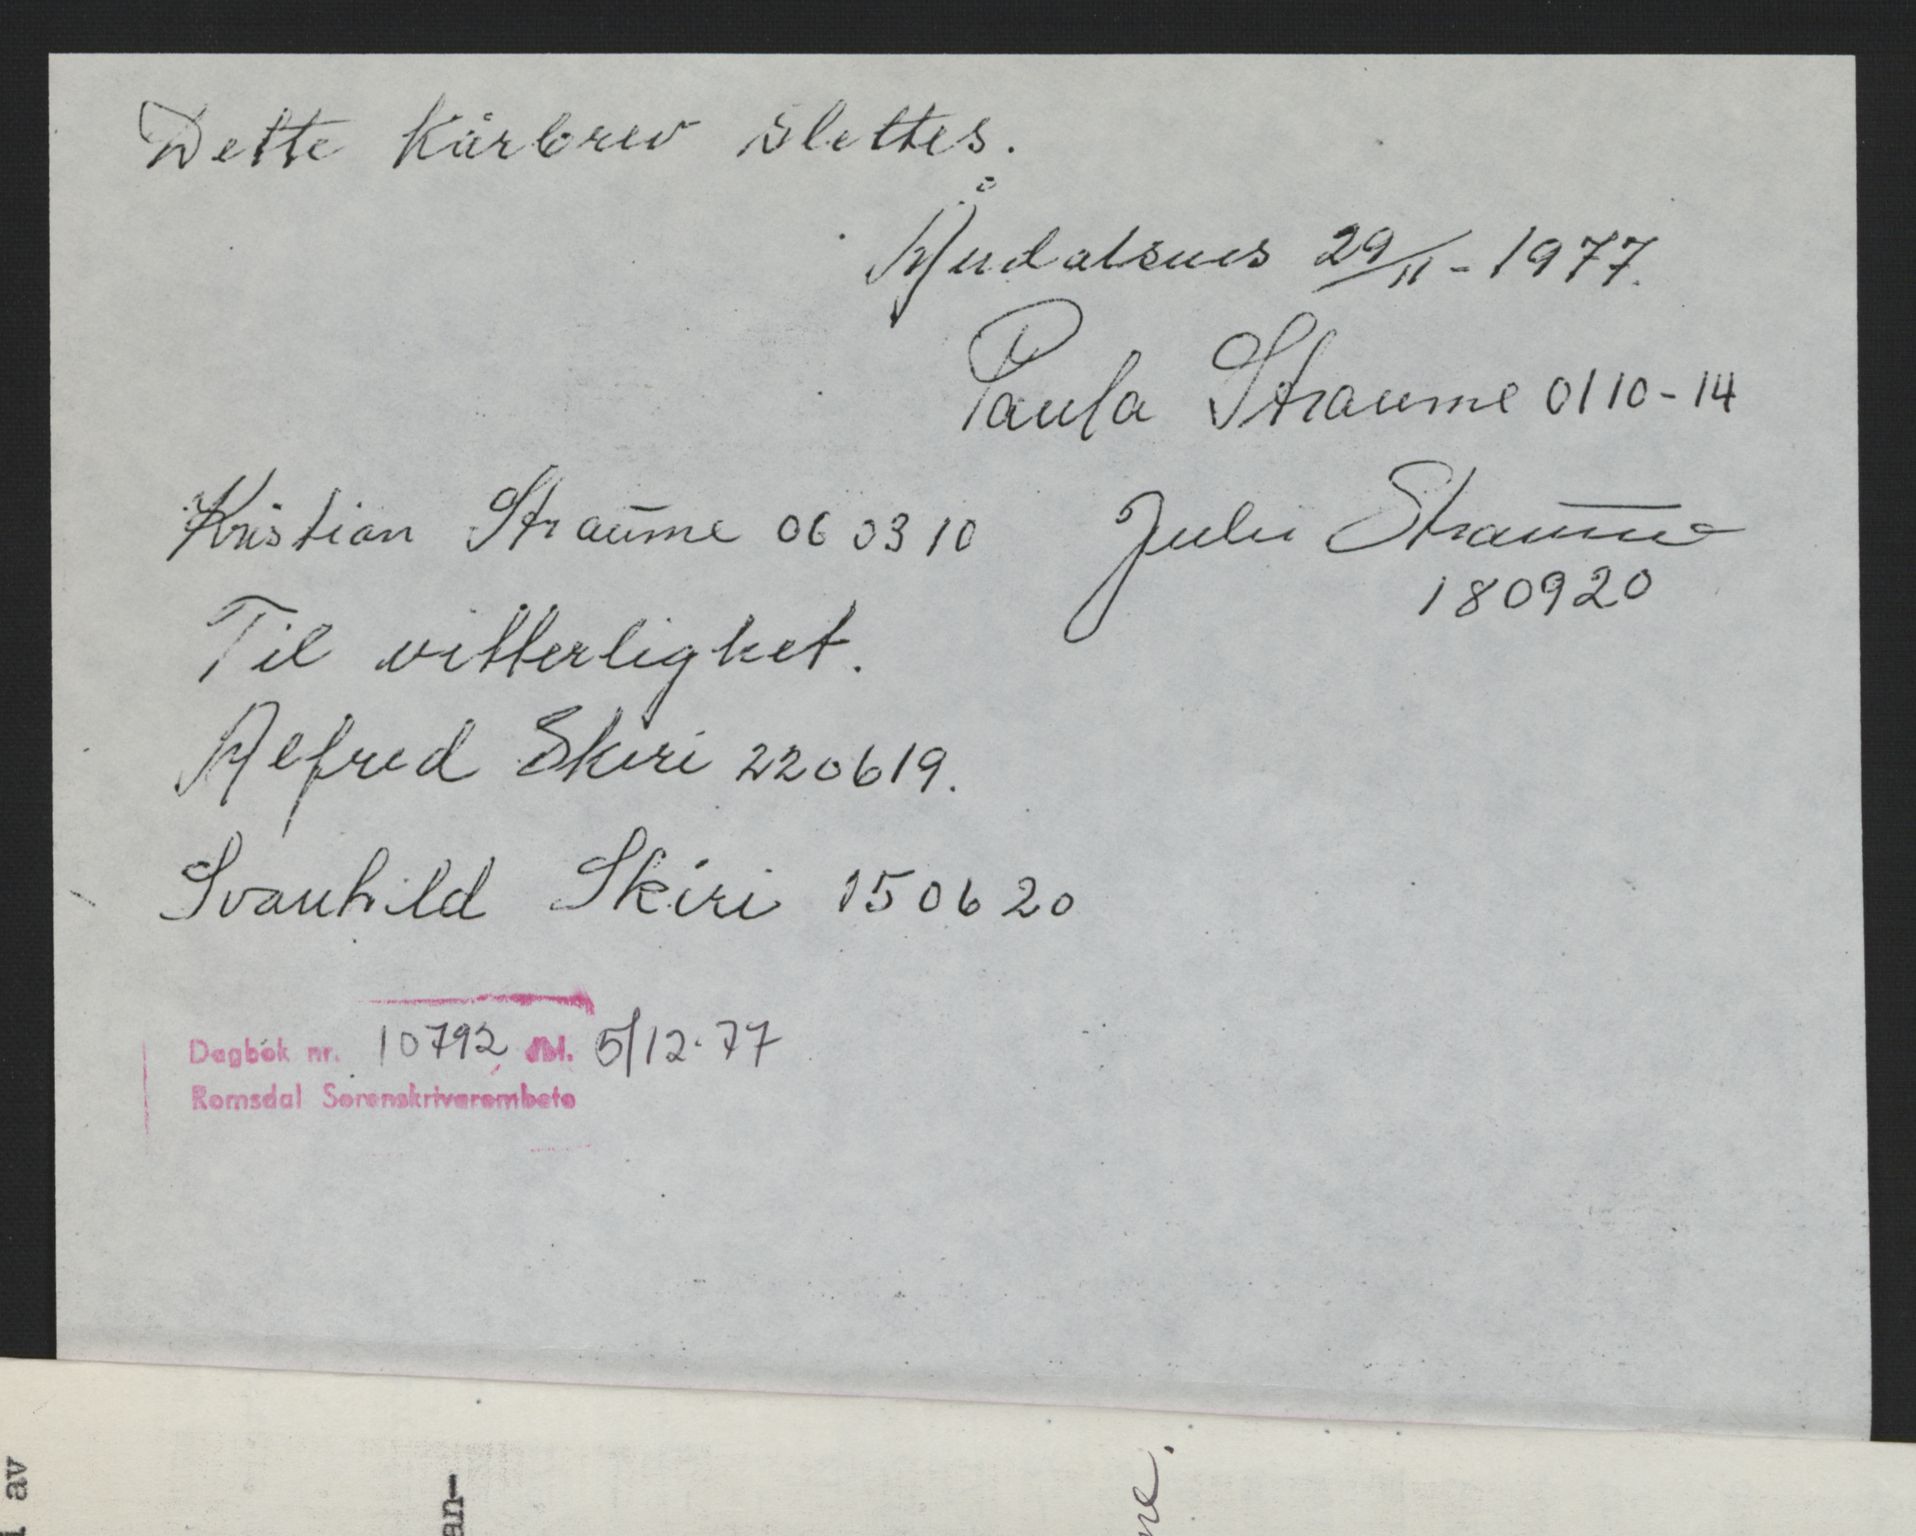 Dette kårbrev slettes.
Åndalsnes 29/11 - 1977.
Paula Straume 0110-14
Kristian Straume 060310
Julie Straume
180920
Til vitterlighet.
Alfred Skiri 220619.
Svanhild Skiri 150620
Dagbok nr. 10792, 5/12-77
Romsdal Sorenskrivarembete
av
an-
ne.